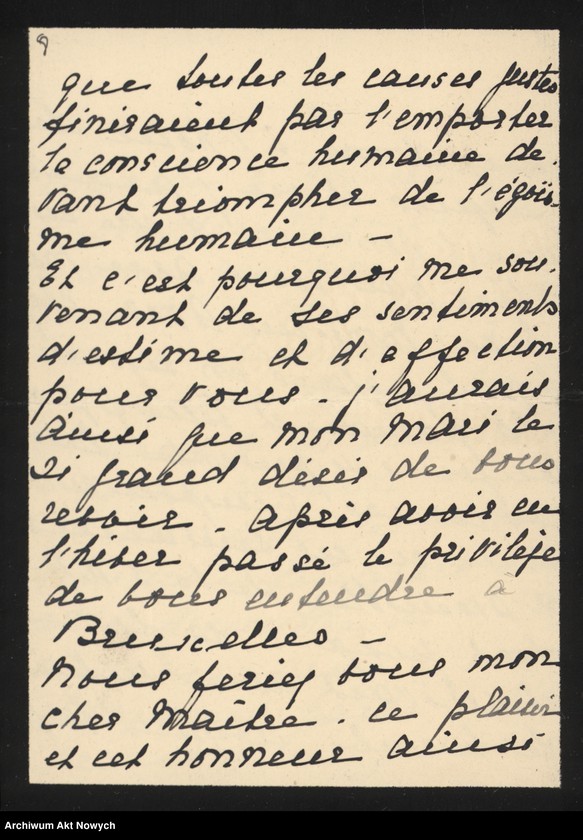 que toutes les causes justes
finiraient par l'emporter
la conscience humaine de-
vant triompher de l'égoïs-
me humain -
Et c'est pourquoi me sou-
venant de ses sentiments
d'estime et d'affection
pour vous - j'aurais
ainsi que mon mari le
si grand désir de vous
revoir - après avoir eu
l'hiver passé le privilège
de vous entendre à
Bruxelles -
Nous feriez vous mon
cher Maître - ce plaisir
et cet honneur ainsi
Archiwum Akt Nowych